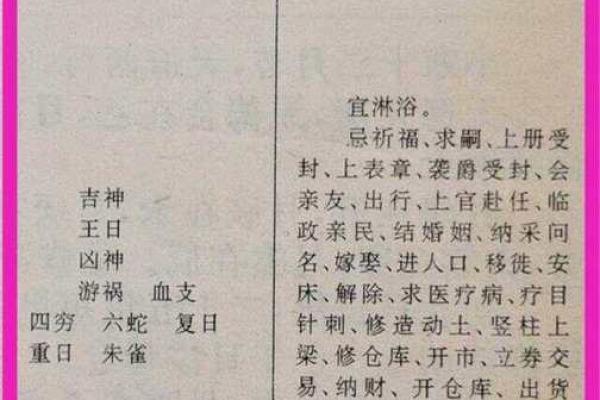 吉神
王日
凶神
游祸 血支
四穷 六蛇 复日
重日 朱雀
宜淋浴。
忌祈福、求嗣、上册受
封、上表章、袭爵受封、会
亲友、出行、上官赴任、临
政亲民、结婚姻、纳采问
名、嫁娶、进人口、移徙、安
床、解除、求医疗病、疗目
针刺、修造动土、竖柱上
梁、修仓库、开市、立券交
易、纳财、开仓库、出货